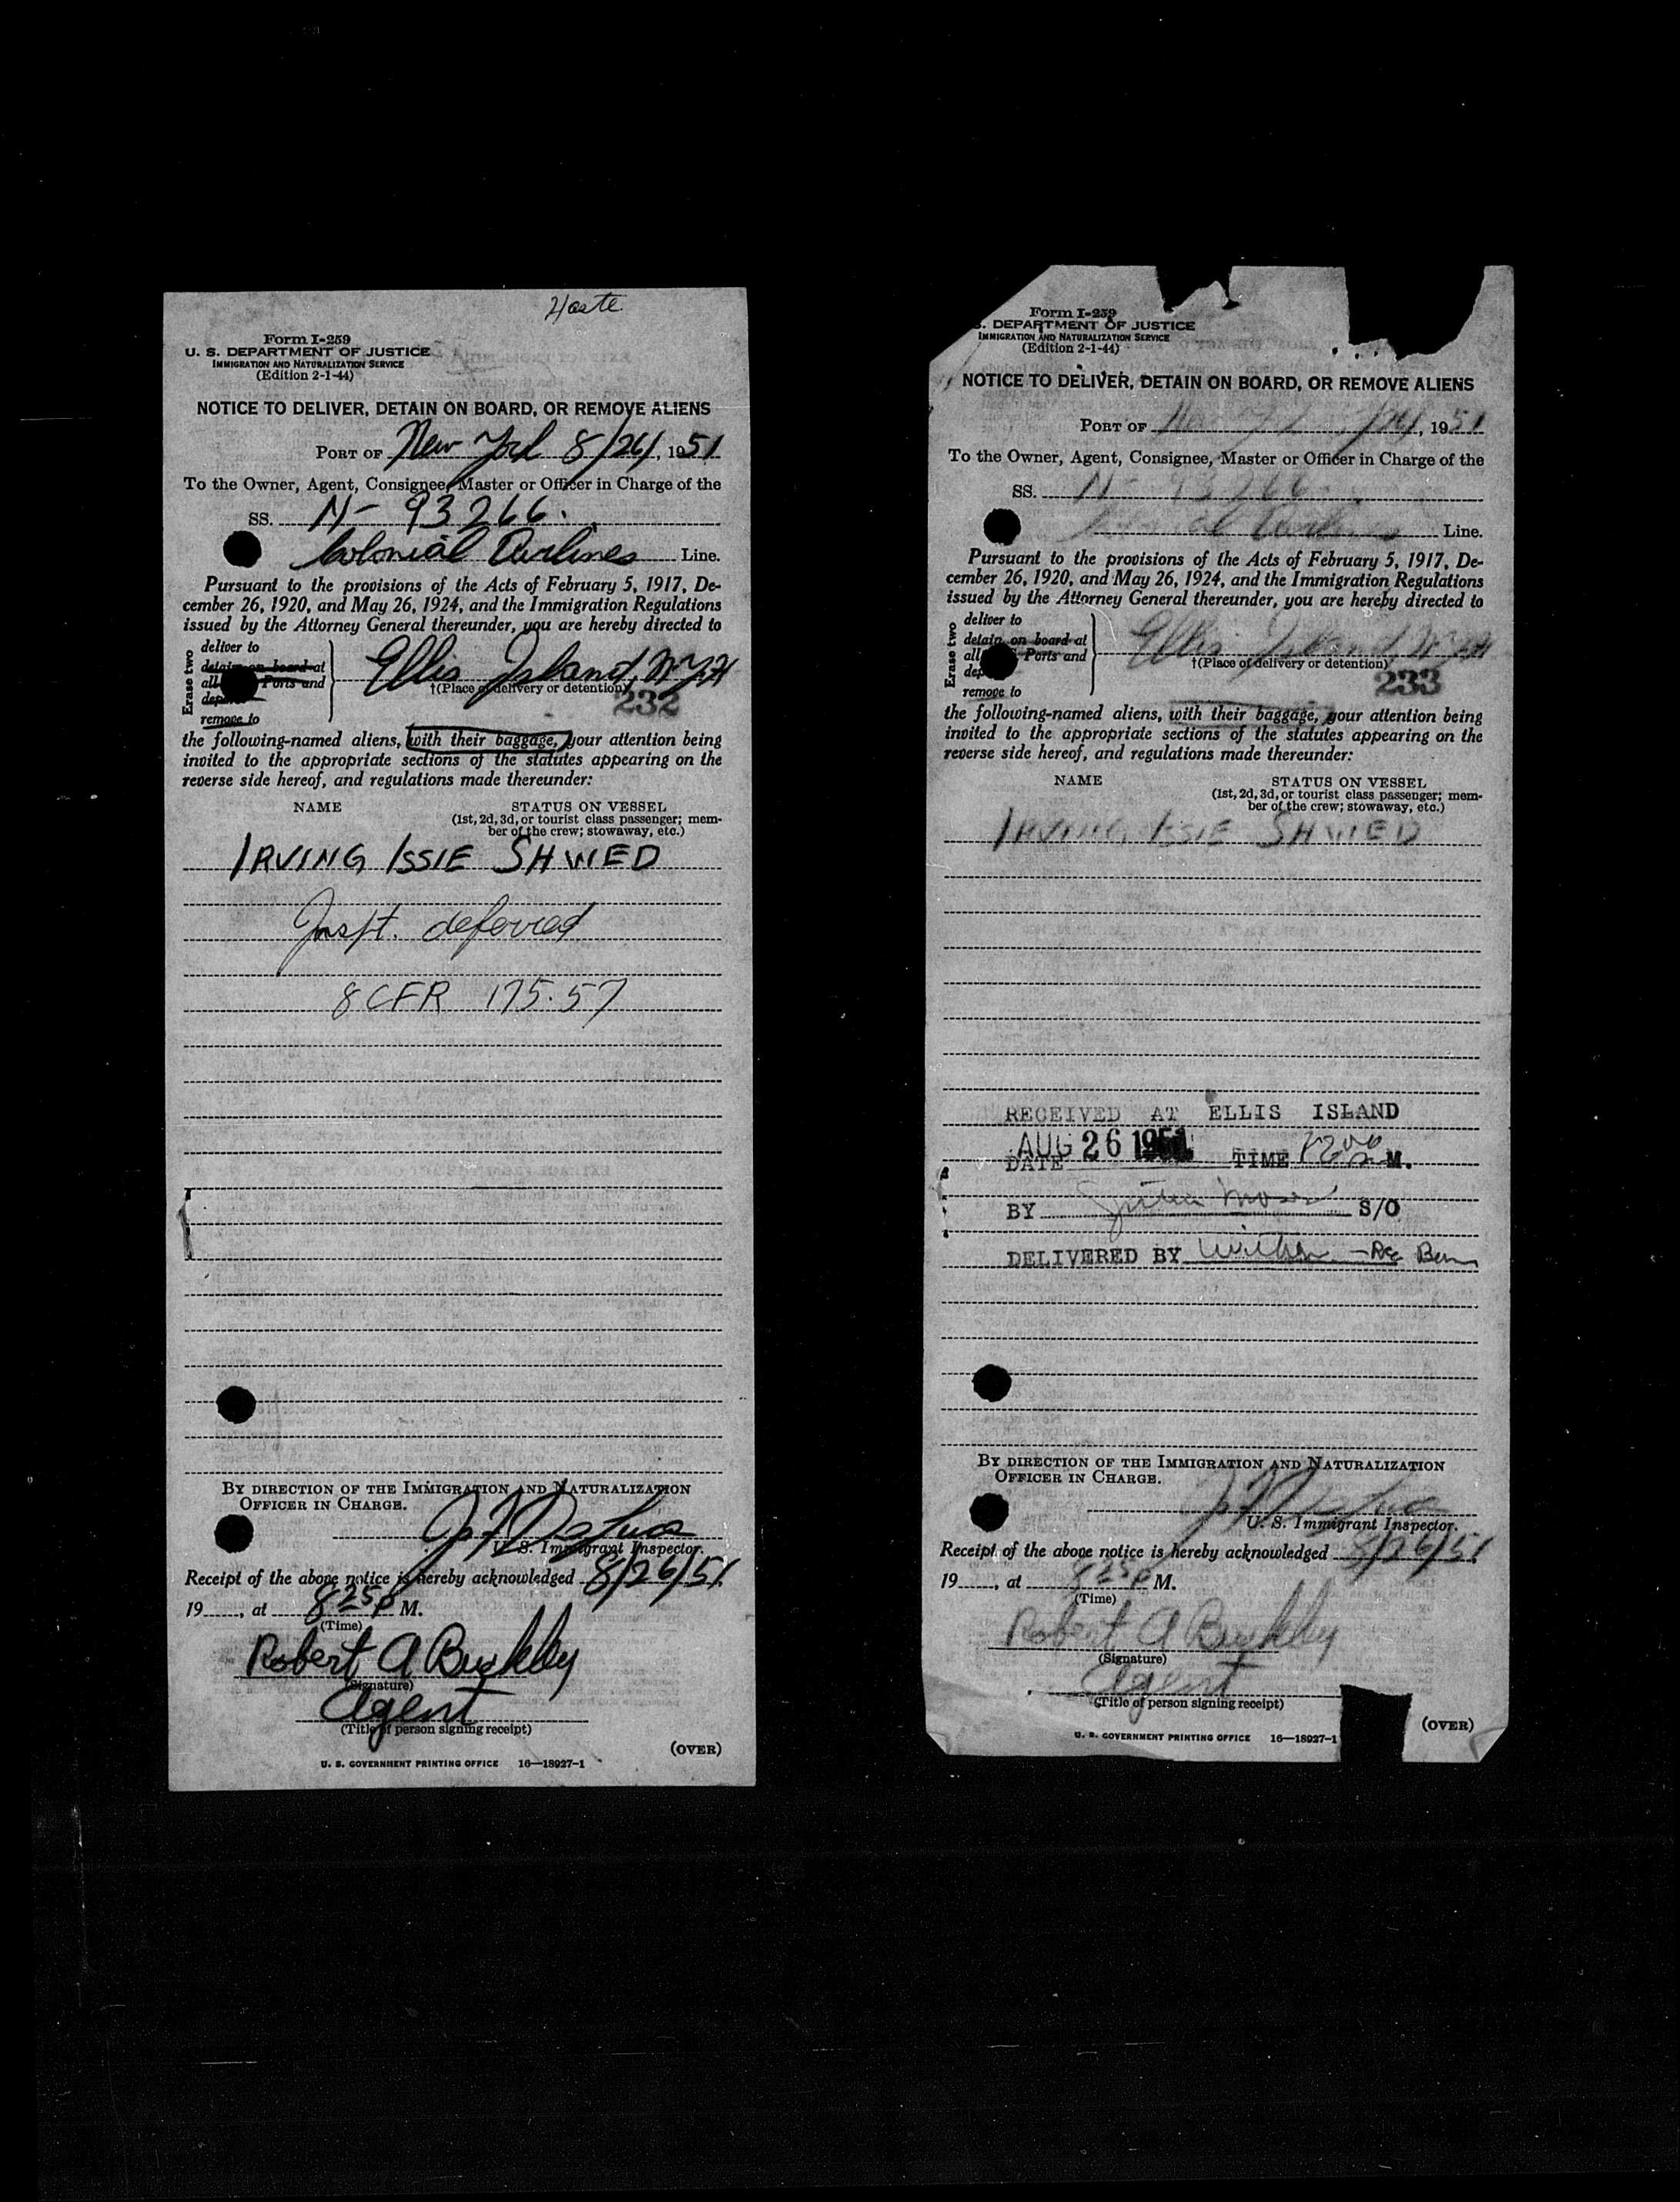 Haste
Form I-259
U. S. DEPARTMENT OF JUSTICE
IMMIGRATION AND NATURALIZATION SERVICE
(Edition 2-1-44)
NOTICE TO DELIVER, DETAIN ON BOARD, OR REMOVE ALIENS
PORT OF New York 8/26/, 1951
To the Owner, Agent, Consignee, Master or Officer in Charge of the
SS. N- 93266.
Colonial Airlines Line.
Pursuant to the provisions of the Acts of February 5, 1917, De-
cember 26, 1920, and May 26, 1924, and the Immigration Regulations
issued by the Attorney General thereunder, you are hereby directed to
Erase two
deliver to
detain on board at
all Ports and
remove to
Ellis Island, N.Y.H
†(Place of delivery or detention)
232
the following-named aliens, with their baggage, your attention being
invited to the appropriate sections of the statutes appearing on the
reverse side hereof, and regulations made thereunder:
NAME STATUS ON VESSEL
(1st, 2d, 3d, or tourist class passenger; mem-
ber of the crew; stowaway, etc.)
IRVING ISSIE SHWED
Inspt. deferred
8 CFR 175.57
BY DIRECTION OF THE IMMIGRATION AND NATURALIZATION
OFFICER IN CHARGE.
U. S. Immigrant Inspector.
Receipt of the above notice is hereby acknowledged 8/26/51
19____, at 8 25 P M.
(Time)
Robert A Buckley
(Signature)
Agent
(Title of person signing receipt)
(OVER)
U. S. GOVERNMENT PRINTING OFFICE 16—18927-1
Form I-259
S. DEPARTMENT OF JUSTICE
IMMIGRATION AND NATURALIZATION SERVICE
(Edition 2-1-44)
NOTICE TO DELIVER, DETAIN ON BOARD, OR REMOVE ALIENS
PORT OF New York 8/26/, 1951
To the Owner, Agent, Consignee, Master or Officer in Charge of the
SS. N- 93266.
Colonial Airlines Line.
Pursuant to the provisions of the Acts of February 5, 1917, De-
cember 26, 1920, and May 26, 1924, and the Immigration Regulations
issued by the Attorney General thereunder, you are hereby directed to
Erase two
deliver to
detain on board at
all Ports and
remove to
Ellis Island, N.Y.H
†(Place of delivery or detention)
233
the following-named aliens, with their baggage, your attention being
invited to the appropriate sections of the statutes appearing on the
reverse side hereof, and regulations made thereunder:
NAME STATUS ON VESSEL
(1st, 2d, 3d, or tourist class passenger; mem-
ber of the crew; stowaway, etc.)
IRVING ISSIE SHWED
RECEIVED AT ELLIS ISLAND
AUG 26 1951
DATE TIME M.
BY S/O
DELIVERED BY
BY DIRECTION OF THE IMMIGRATION AND NATURALIZATION
OFFICER IN CHARGE.
U. S. Immigrant Inspector.
Receipt of the above notice is hereby acknowledged 8/26/51
19____, at 8 25 P M.
(Time)
Robert A Buckley
(Signature)
Agent
(Title of person signing receipt)
(OVER)
U. S. GOVERNMENT PRINTING OFFICE 16—18927-1